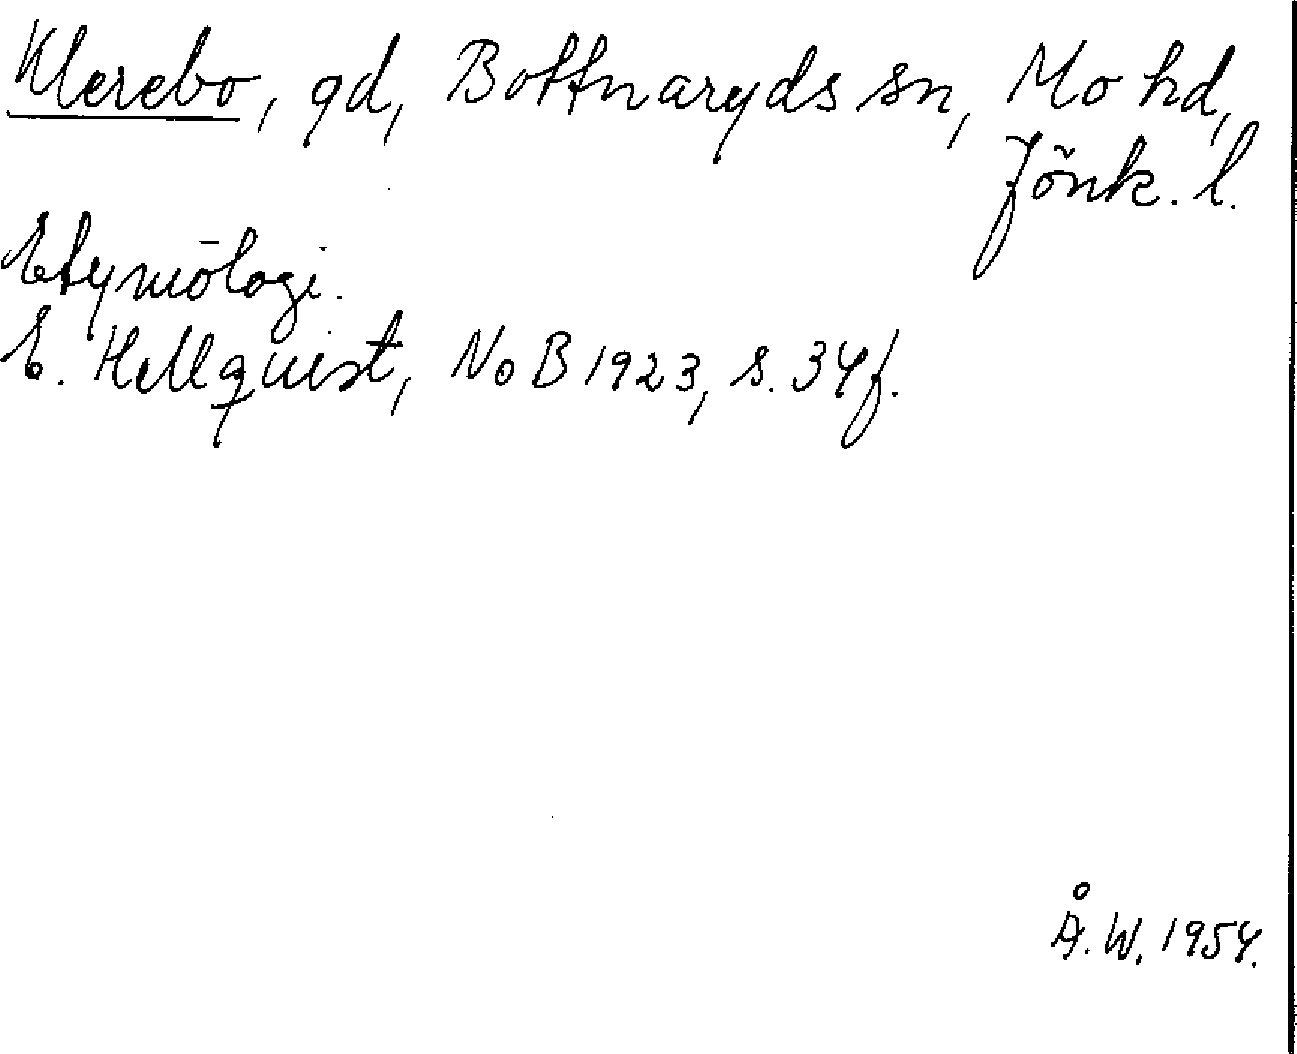 Klerebo, gd, Bottnaryds sn, Mo hd,
Jönk. l.
Etymologi.
E. Hellquist, NoB 1923, s. 34f.
Å. W. 1954.